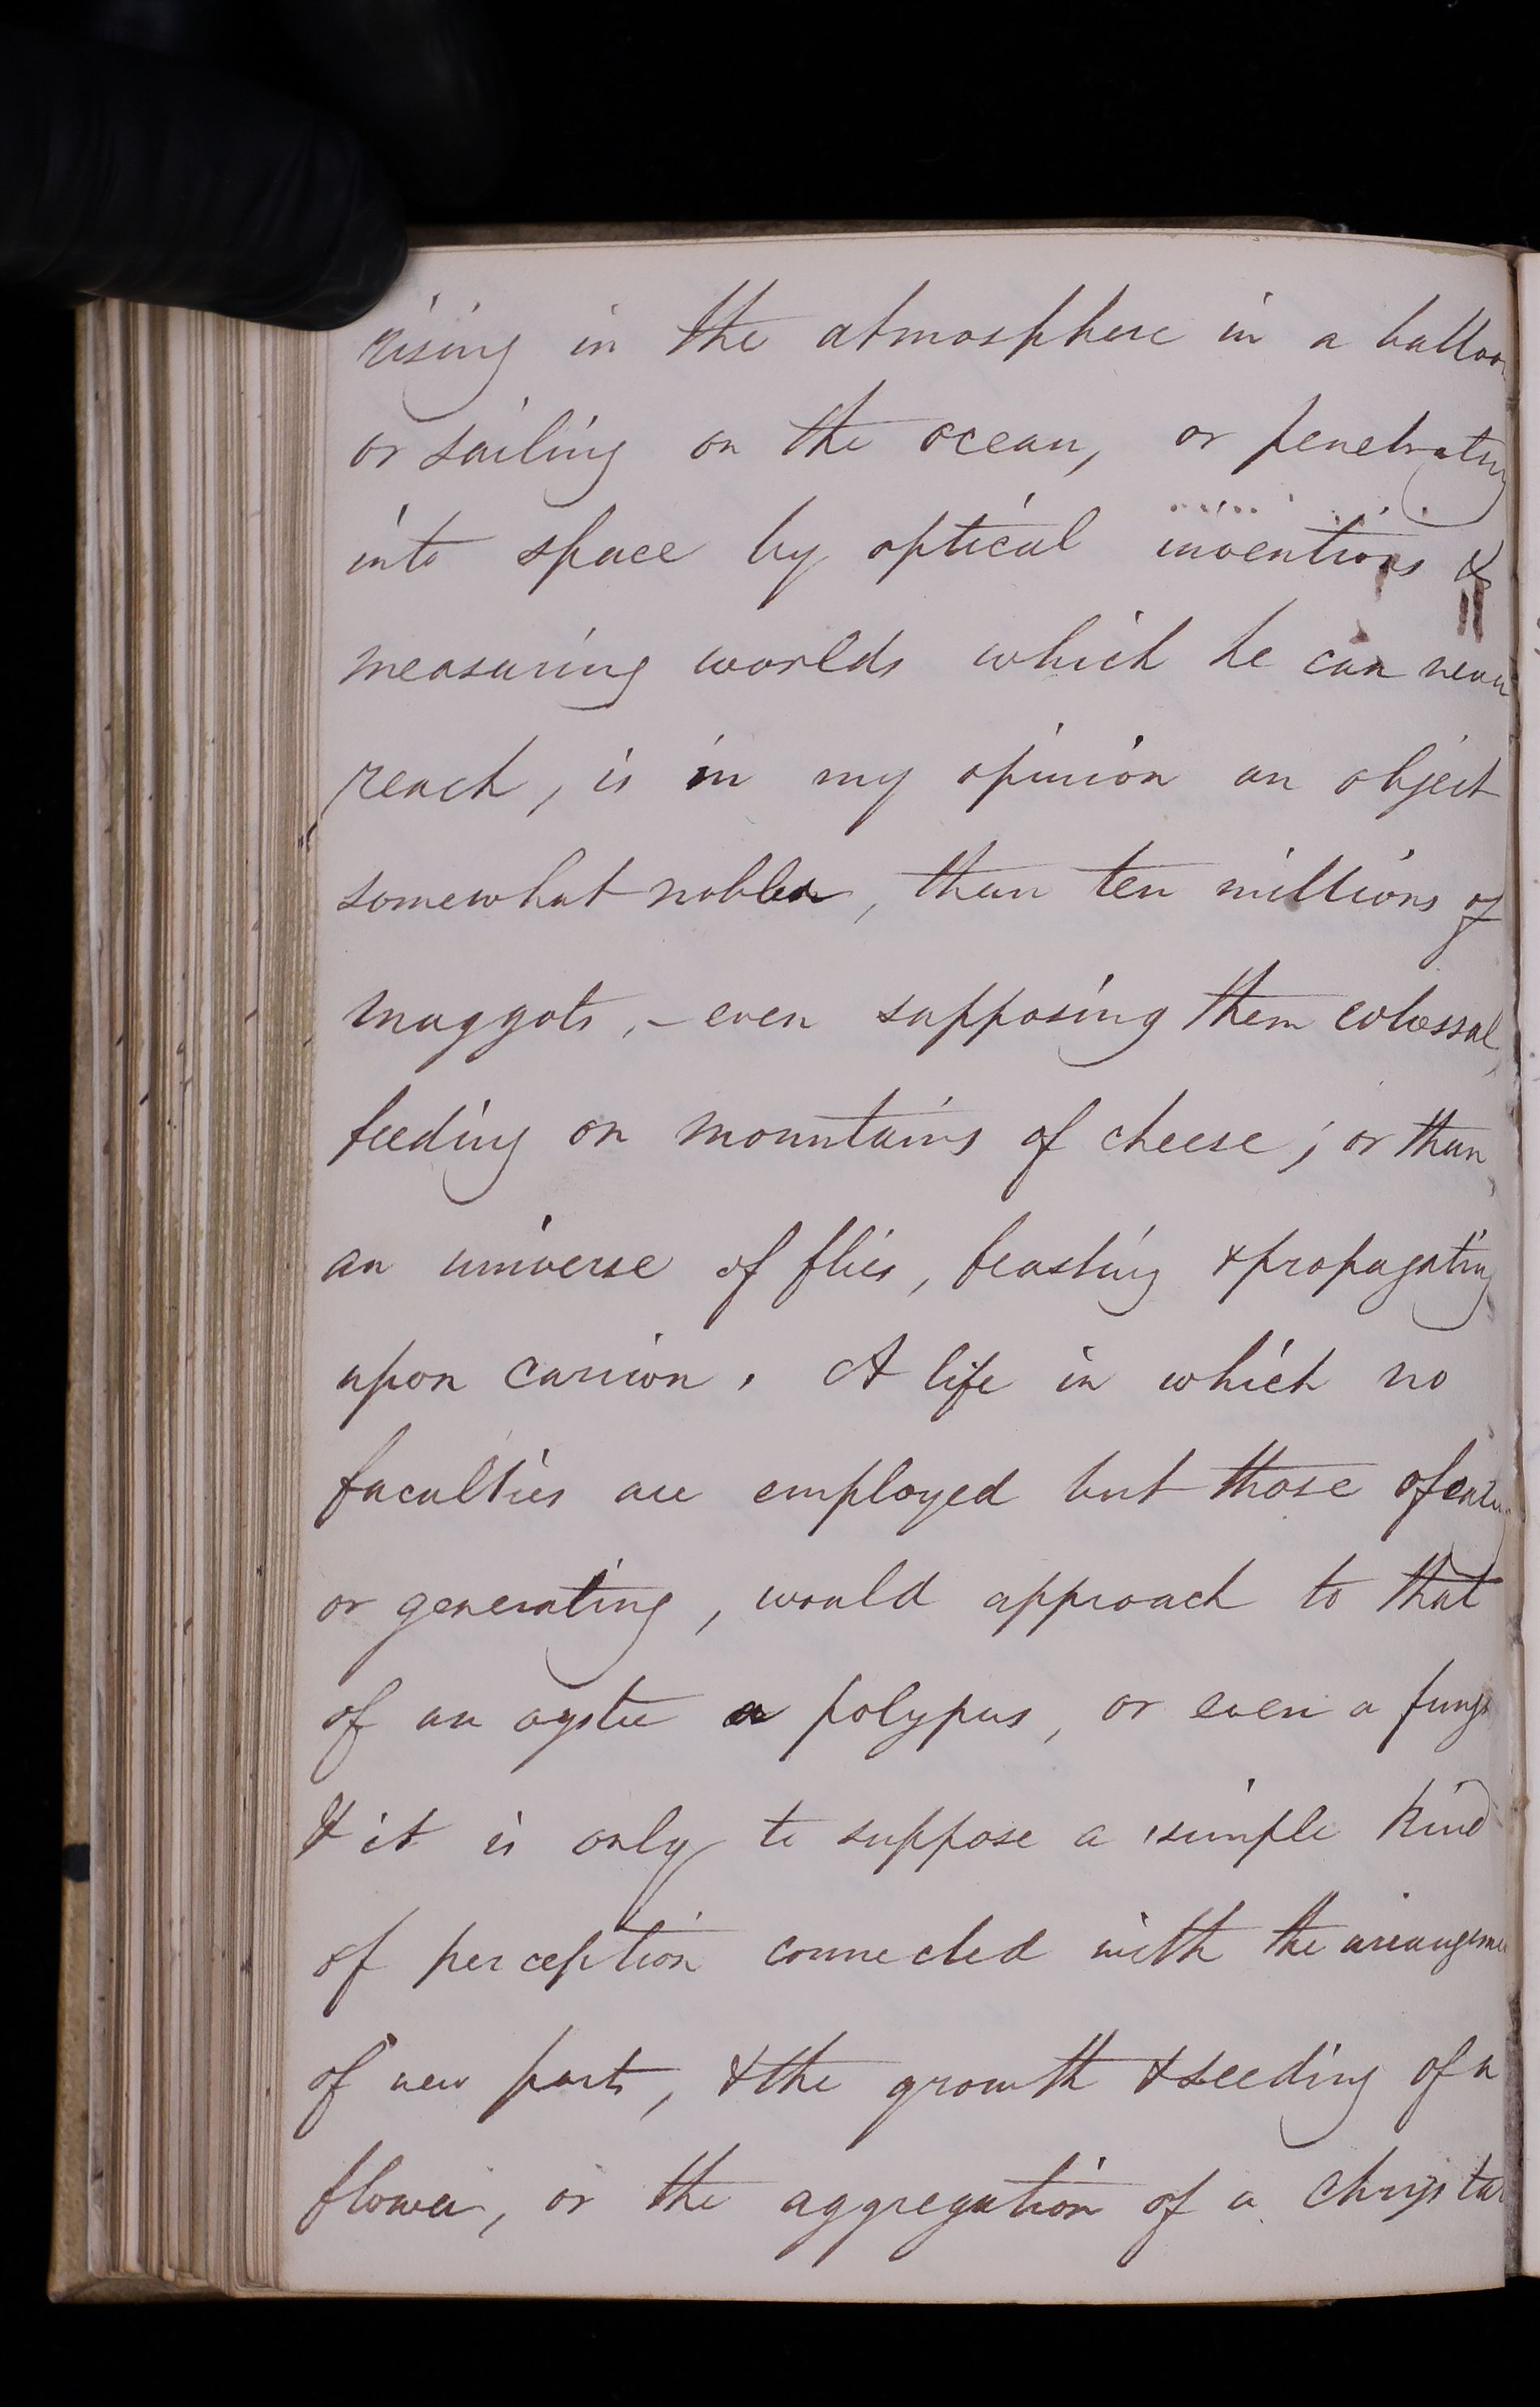 rising in the atmosphere in a balloon
or sailing on the ocean, or penetrating
into space by optical inventions &
measuring worlds which he can never
reach, is in my opinion an object
somewhat nobler, than ten millions of
maggots, – even supposing them colossal,
feeding on mountains of cheese; or than
an universe of flies, feasting & propagating
upon carrion. A life in which no
faculties are employed but those of eating
or generating, would approach to that
of an oyster a polypus, or even a fungus
& it is only to suppose a simple kind
of perception connected with the arrangement
of new parts, & the growth & seeding of a
flower, or the aggregation of a chrystal